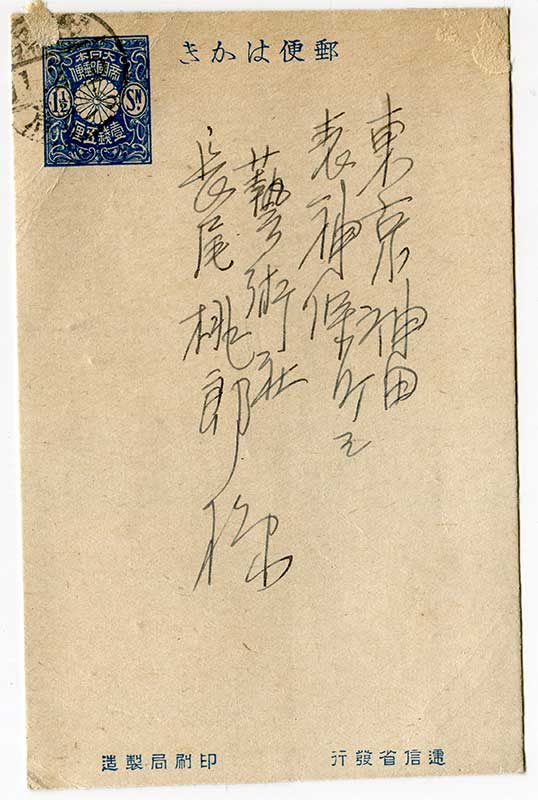 郵便はかき
大日本
帝國郵便
1½
Sn.
壹錢五厘
東京神田
表神保町三
藝術社
長尾桃郎様
遞信省發行
印刷局製造